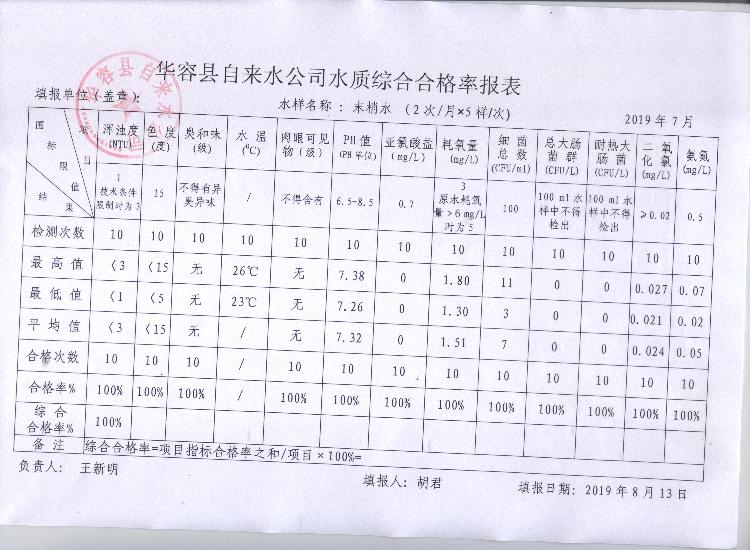 华容县自来水公司水质综合合格率报表
填报单位(盖章):
水样名称: 末梢水 (2次/月×5样/次)
2019年7月
项目 国标限值 结果 浑浊度(NTU) 色度(度) 臭和味(级) 水温(℃) 肉眼可见物(级) PH值(PH单位) 亚氯酸盐(mg/L) 耗氧量(mg/L) 细菌总数(CFU/ml) 总大肠菌群(CFU/L) 耐热大肠菌(CFU/L) 二氧化氯(mg/L) 氨氮(mg/L)
1 技术条件限制时为3 15 不得有异臭异味 / 不得含有 6.5-8.5 0.7 3 原水耗氧量>6mg/L时为5 100 100ml水样中不得检出 100ml水样中不得检出 ≥0.02 0.5
检测次数 10 10 10 10 10 10 10 10 10 10 10 10 10
最高值 <3 <15 无 26℃ 无 7.38 0 1.80 11 0 0 0.027 0.07
最低值 <1 <5 无 23℃ 无 7.26 0 1.30 3 0 0 0.021 0.02
平均值 <3 <15 无 / 无 7.32 0 1.51 7 0 0 0.024 0.05
合格次数 10 10 10 / 10 10 10 10 10 10 10 10 10
合格率% 100% 100% 100% / 100% 100% 100% 100% 100% 100% 100% 100% 100%
综合合格率% 100%
备注 综合合格率=项目指标合格率之和/项目×100%=
负责人: 王新明
填报人: 胡君
填报日期: 2019年8月13日